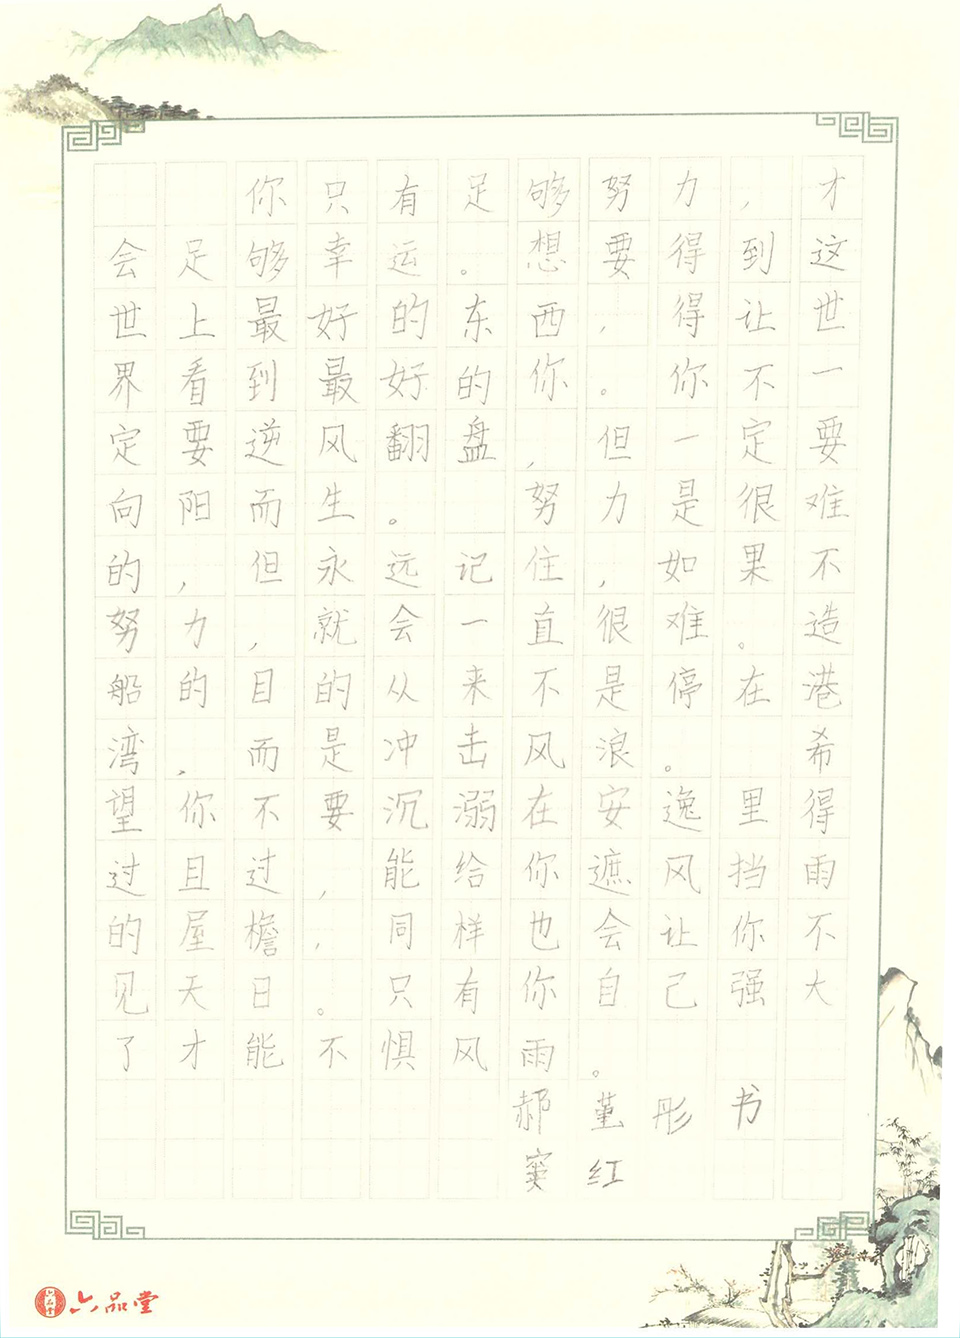 你只有足够努力,才
会足够幸运。想要得到这
世上最好的东西,得让世
界看到最好的你。你不一
定要逆风翻盘,但一定要
向阳而生。努力是很难
的,但永远记住,如果不
努力,就会一直很难。造
船的目的从来不是停在港
湾,而是冲击风浪。希
望你不要沉溺在安逸里得
过且过,能给你遮风挡雨
的屋檐,同样也会让你不
见天日。只有你自己强大
了才能不惧风雨。
郝堇彤书
窦红
六品堂